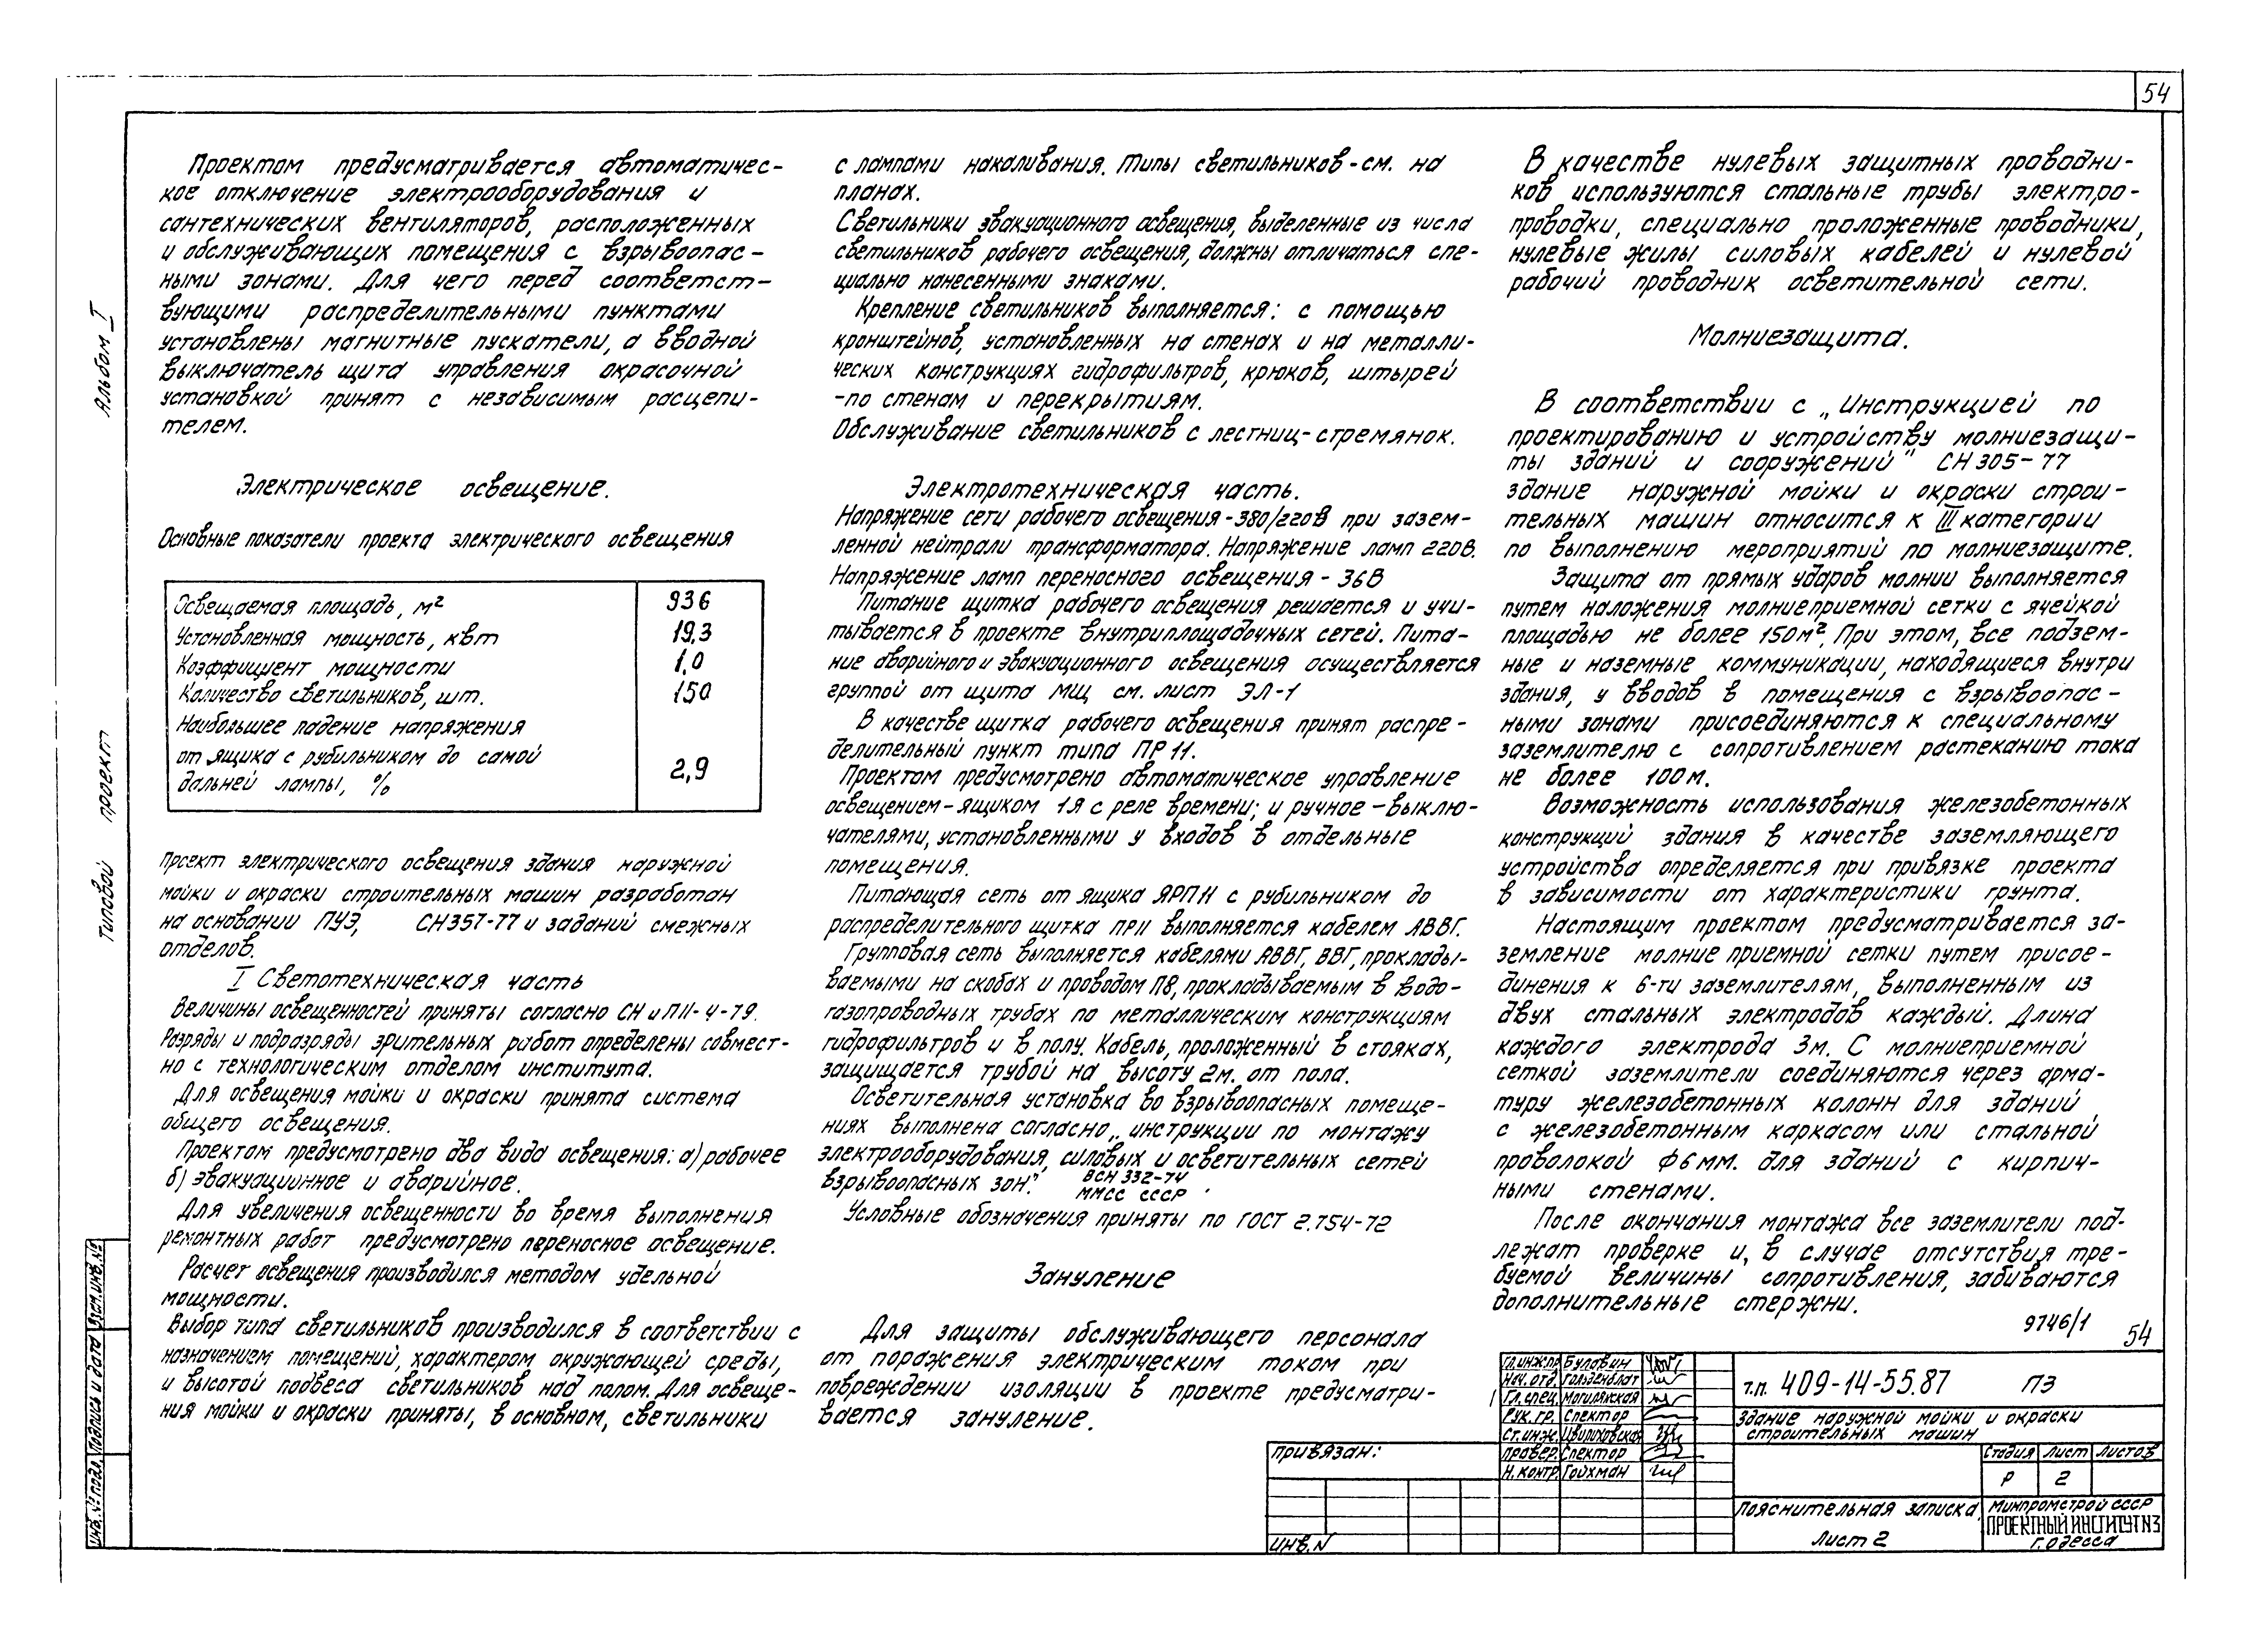 54
Проектом предусматривается автоматичес-
кое отключение электрооборудования и
сантехнических вентиляторов, расположенных
и обслуживающих помещения с взрывоопас-
ными зонами. Для чего перед соответст-
вующими распределительными пунктами
установлены магнитные пускатели, а вводной
выключатель щита управления окрасочной
установкой принят с независимым расцепи-
телем.
Электрическое освещение.
Основные показатели проекта электрического освещения
Освещаемая площадь, м² 936
Установленная мощность, квт 19,3
Коэффициент мощности 1,0
Количество светильников, шт. 150
Наибольшее падение напряжения
от ящика с рубильником до самой
дальней лампы, % 2,9
Проект электрического освещения здания наружной
мойки и окраски строительных машин разработан
на основании ПУЭ, СН357-77 и заданий смежных
отделов.
I Светотехническая часть
Величины освещенностей приняты согласно СН и ПII-4-79.
Разряды и подразряды зрительных работ определены совмест-
но с технологическим отделом института.
Для освещения мойки и окраски принята система
общего освещения.
Проектом предусмотрено два вида освещения: а) рабочее
б) эвакуационное и аварийное.
Для увеличения освещенности во время выполнения
ремонтных работ предусмотрено переносное освещение.
Расчет освещения производился методом удельной
мощности.
Выбор типа светильников производился в соответствии с
назначением помещений, характером окружающей среды,
и высотой подвеса светильников над полом. Для освеще-
ния мойки и окраски приняты, в основном, светильники
с лампами накаливания. Типы светильников - см. на
планах.
Светильники эвакуационного освещения, выделенные из числа
светильников рабочего освещения, должны отличаться спе-
циально нанесенными знаками.
Крепление светильников выполняется: с помощью
кронштейнов, установленных на стенах и на металли-
ческих конструкциях гидрофильтров, крюков, штырей
-по стенам и перекрытиям.
Обслуживание светильников с лестниц-стремянок.
Электротехническая часть.
Напряжение сети рабочего освещения - 380/220В при зазем-
ленной нейтрали трансформатора. Напряжение ламп 220В.
Напряжение ламп переносного освещения - 36В
Питание щитка рабочего освещения решается и учи-
тывается в проекте внутриплощадочных сетей. Пита-
ние аварийного и эвакуационного освещения осуществляется
группой от щита МЩ см. лист ЭЛ-1
В качестве щитка рабочего освещения принят распре-
делительный пункт типа ПР 11.
Проектом предусмотрено автоматическое управление
освещением - ящиком 1Я с реле времени; и ручное - выклю-
чателями, установленными у входов в отдельные
помещения.
Питающая сеть от ящика ЯРП11 с рубильником до
распределительного щитка ПР11 выполняется кабелем АВВГ.
Групповая сеть выполняется кабелями АВВГ, ВВГ, проклады-
ваемыми на скобах и проводом ПВ, прокладываемым в водо-
газопроводных трубах по металлическим конструкциям
гидрофильтров и в полу. Кабель, проложенный в стояках,
защищается трубой на высоту 2м. от пола.
Осветительная установка во взрывоопасных помеще-
ниях выполнена согласно „инструкции по монтажу
электрооборудования, силовых и осветительных сетей
взрывоопасных зон." ВСН 332-74
ММСС СССР .
Условные обозначения приняты по ГОСТ 2.754-72
Зануление
Для защиты обслуживающего персонала
от поражения электрическим током при
повреждении изоляции в проекте предусматри-
вается зануление.
В качестве нулевых защитных проводни-
ков используются стальные трубы электро-
проводки, специально проложенные проводники,
нулевые жилы силовых кабелей и нулевой
рабочий проводник осветительной сети.
Молниезащита.
В соответствии с „Инструкцией по
проектированию и устройству молниезащи-
ты зданий и сооружений" СН 305-77
здание наружной мойки и окраски строи-
тельных машин относится к III категории
по выполнению мероприятий по молниезащите.
Защита от прямых ударов молнии выполняется
путем наложения молниеприемной сетки с ячейкой
площадью не более 150м². При этом, все подзем-
ные и наземные коммуникации, находящиеся внутри
здания, у вводов в помещения с взрывоопас-
ными зонами присоединяются к специальному
заземлителю с сопротивлением растеканию тока
не более 100м.
Возможность использования железобетонных
конструкций здания в качестве заземляющего
устройства определяется при привязке проекта
в зависимости от характеристики грунта.
Настоящим проектом предусматривается за-
земление молние приемной сетки путем присое-
динения к 6-ти заземлителям, выполненным из
двух стальных электродов каждый. Длина
каждого электрода 3м. С молниеприемной
сеткой заземлители соединяются через арма-
туру железобетонных колонн для зданий,
с железобетонным каркасом или стальной
проволокой ф6мм. для зданий с кирпич-
ными стенами.
После окончания монтажа все заземлители под-
лежат проверке и, в случае отсутствия тре-
буемой величины сопротивления, забиваются
дополнительные стержни.
9746/1 54
Альбом I
Типовой проект
Инв. № подл. Подпись и дата Взам.инв.№
Привязан:
Инв. N
Гл.инж.пр. Булавин
Нач. отд. Гольденблат
Гл. спец. Могилянская
Рук. гр. Спектор
Ст. инж.
Провер. Спектор
Н. контр. Гойхман
т.п. 409-14-55.87 ПЗ
Здание наружной мойки и окраски
строительных машин
Стадия Лист Листов
Р 2
Пояснительная записка,
Лист 2
Минпромстрой СССР
ПРОЕКТНЫЙ ИНСТИТУТ N3
г. Одесса